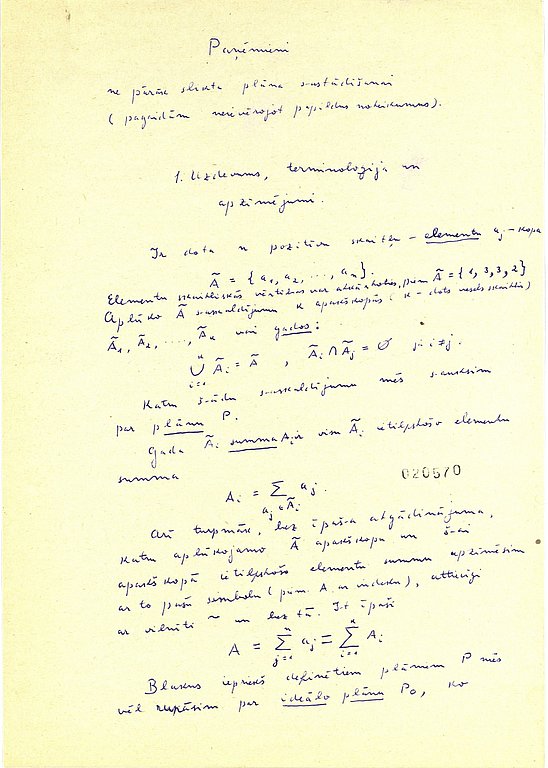 Paņēmieni
ne pārāk slikta plāna sastādīšanai
(pagaidām neievērojot papildus noteikumus).
1. Uzdevums, terminoloģija un
apzīmējumi.
Ir dota n pozitīvu skaitļu – elementu aj – kopa
Ã = {a1, a2, ..., an}.
Elementu skaitliskās vērtības var atkārtoties, piem Ã = {1, 3, 3, 2}
Aplūko Ã saskaldījumu k apakškopās (k – dots vesels skaitlis)
Ã1, Ã2, ..., Ãk vai gados:
k ⋃ i=1 Ãi = Ã , Ãi ∩ Ãj = ∅ ja i ≠ j.
Katru šādu saskaldījumu mēs sauksim
par plānu P.
Gada Ãi summa Ai ir visu Ãi ietilpstošo elementu
summa
Ai = ∑ aj∈Ãi aj.
020570
Arī turpmāk, bez īpaša atgādinājuma,
katru aplūkojamo Ã apakškopu un šai
apakškopā ietilpstošo elementu summu apzīmēsim
ar to pašu simbolu (piem. A ar indeksu), attiecīgi
ar vilnīti ~ un bez tā. It īpaši
A = n ∑ j=1 aj = k ∑ i=1 Ai
Blakus iepriekš definētiem plāniem P mēs
vēl runāsim par ideālo plānu P0, ko